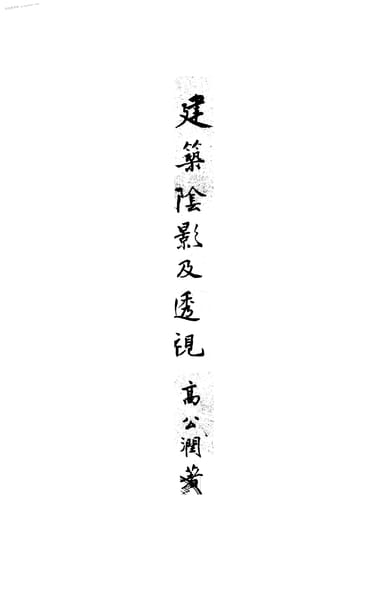 建築陰影及透視
高公潤